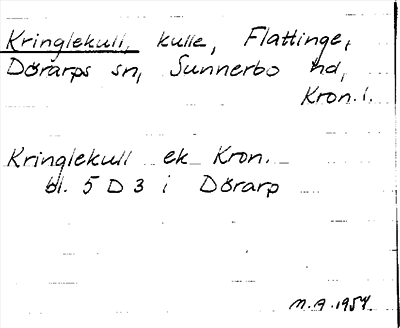 Kringlekull, kulle, Flattinge,
Dörarps sn, Sunnerbo hd,
Kron. l.
Kringlekull ek Kron.
bl. 5 D 3 i Dörarp
M.A. 1954